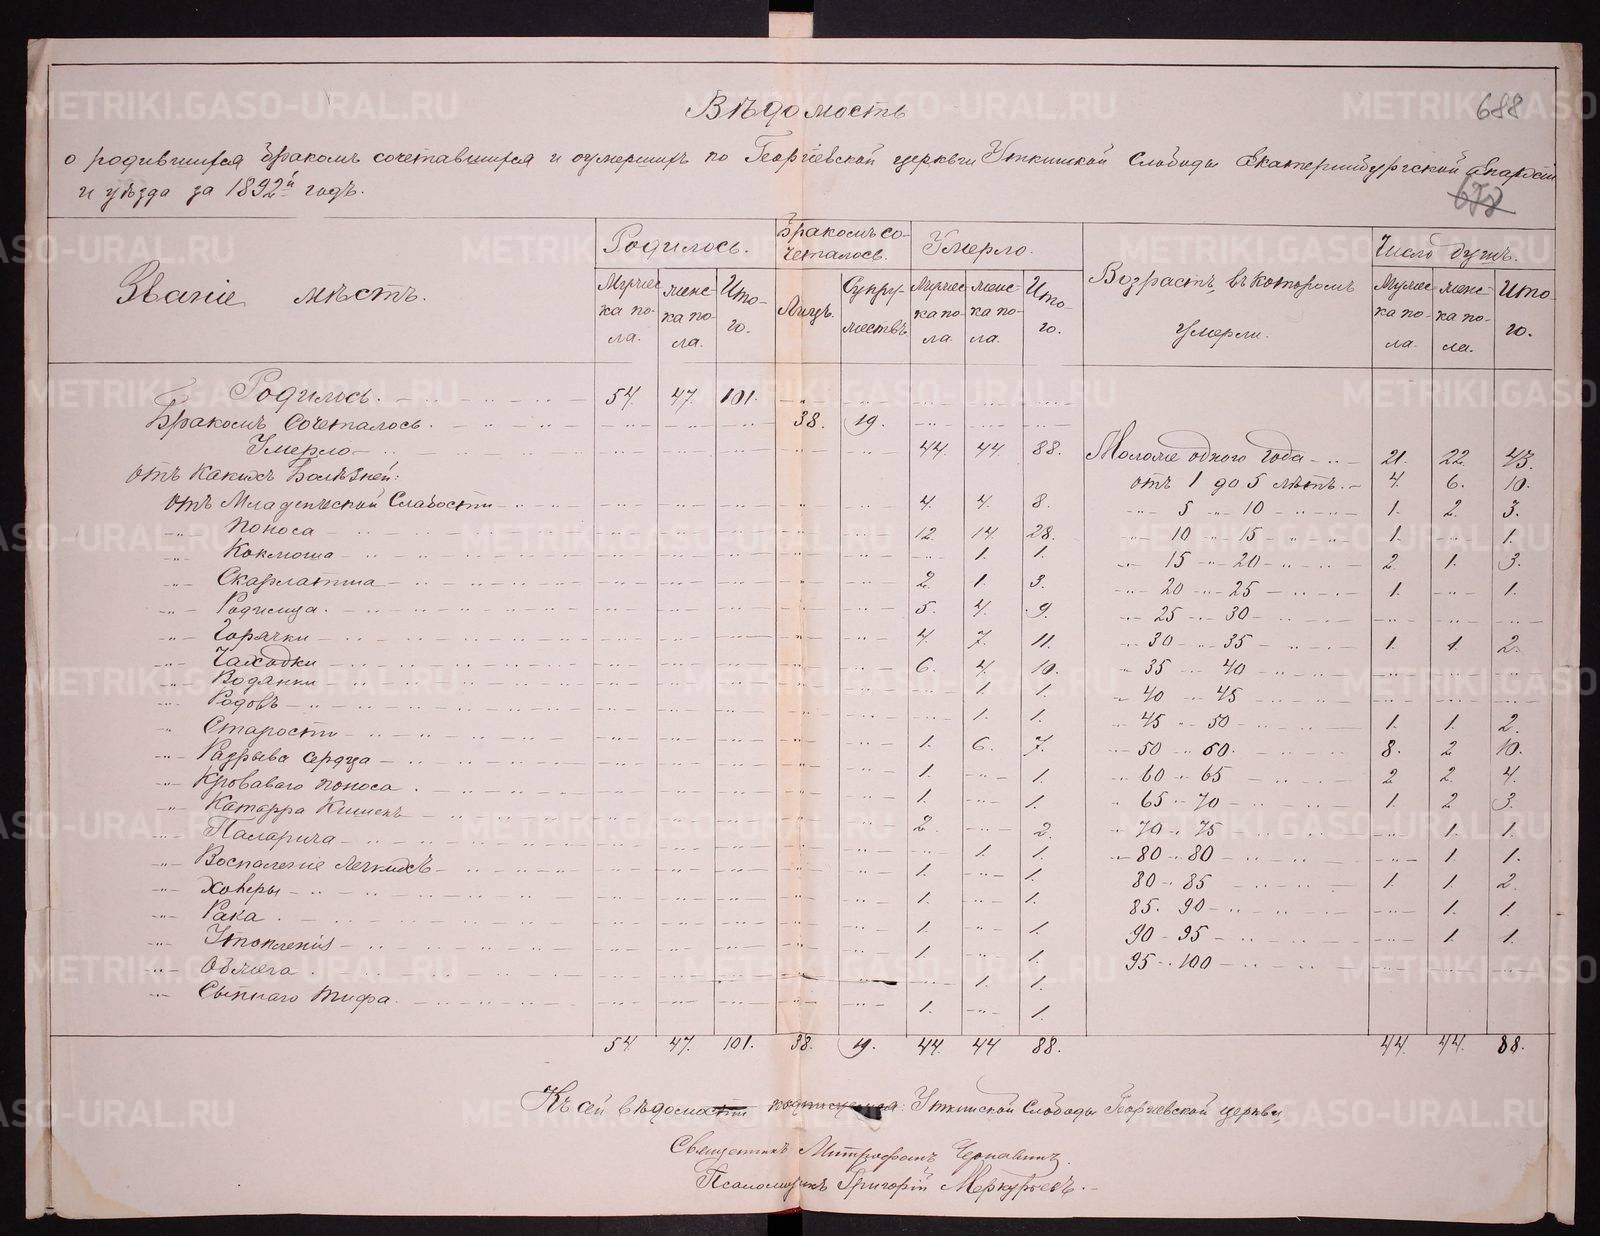 Вѣдомость
688
о родившихся бракомъ сочетавшихся и умершихъ по Георгіевской церкви Уткинской Слободы Екатеринбургской Епархіи
и уѣзда за 1892й годъ.
Званіе мѣстъ. Родилось. Бракомъ со-четалось. Умерло. Возрастъ, въ которомъ умерли. Число душъ.
Мужес-ка по-ла. женс-ка по-ла. Ито-го. Лицъ. Супру-жествъ. Мужес-ка по-ла женс-ка по-ла. Ито-го. Мужес-ка по-ла. женс-ка по-ла. Ито-го.
Родилось. 54. 47. 101.
Бракомъ Сочеталось. 38. 19.
Умерло 44. 44. 88. Моложе одного года 21. 22. 43.
отъ какихъ Болѣзней: отъ 1 до 5 лѣтъ. 4. 6. 10.
отъ Младенческой Слабости 4. 4. 8. 5 10 1. 2. 3.
Поноса 12. 14. 28. 10 15 1. 1.
Коклюша 1. 1. 15 20 2. 1. 3.
Скарлатина 2. 1. 3. 20 25 1. 1.
Родимца. 5. 4. 9. 25 30
Горячки 4. 7. 11. 30 35 1. 1. 2.
Чахотки 6. 4. 10. 35 40
Водянки 1. 1. 40 45
Родовъ 1. 1. 45 50 1. 1. 2.
Старости 1. 6. 7. 50 60. 8. 2. 10.
Разрыва сердца 1. 1. 60 65 2. 2. 4.
Кроваваго поноса 1. 1. 65 70 1. 2. 3.
Катарра Кишекъ 2. 2. 70 75 1. 1.
1. 1. 80 80 1. 1.
Воспаленіе легкихъ 1. 1. 80 85 1. 1. 2.
Холеры 1. 1. 85. 90 1. 1.
Рака 1. 1. 90 95 1. 1.
Утопленія 1. 1. 95 100
Ожега 1. 1.
Сыпнаго тифа. 1. 1.
54 47. 101. 38. 19. 44. 44 88. 44. 44. 88.
Къ сей вѣдомости подписуемся: Уткинской Слободы Георгіевской церкви
Священникъ Митрофанъ
Псаломщикъ Григорій Меркурьевъ.
METRIKI.GASO-URAL.RU